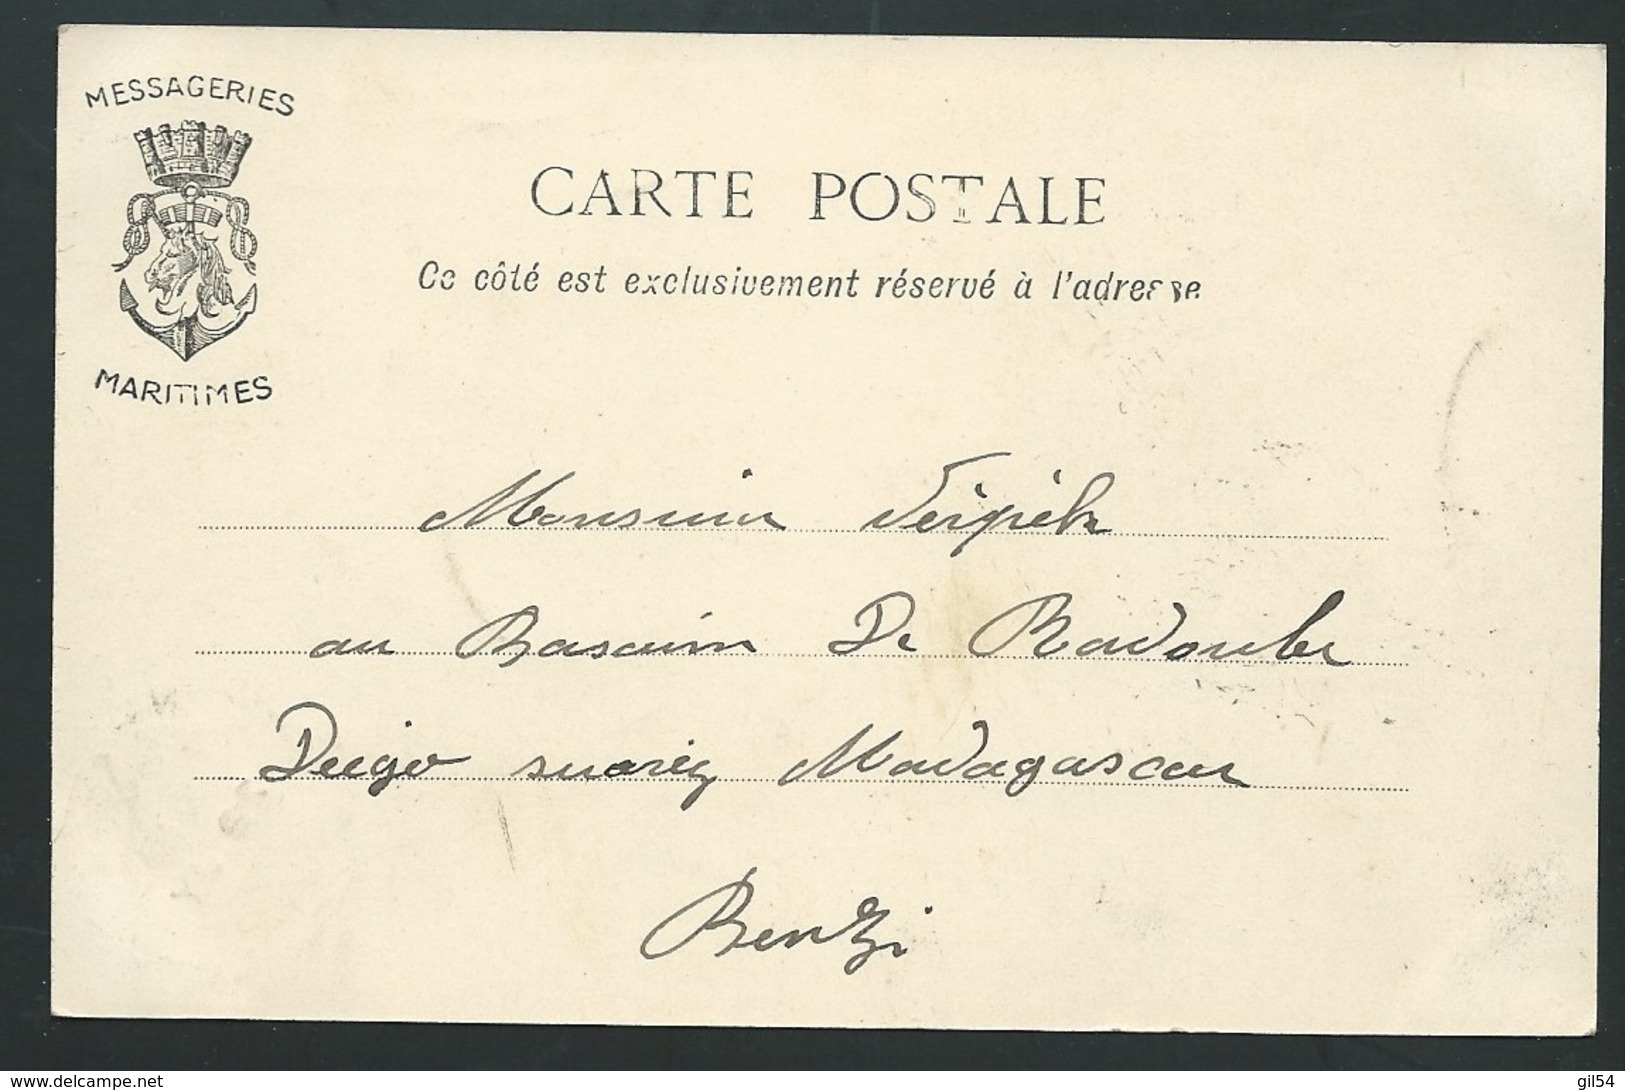 MESSAGERIES
MARITIMES
CARTE POSTALE
Ce côté est exclusivement réservé à l'adresse
Monsieur
au Bassin De Radoube
Diego suarez Madagascar
Benzi
delcampe.net
gil54